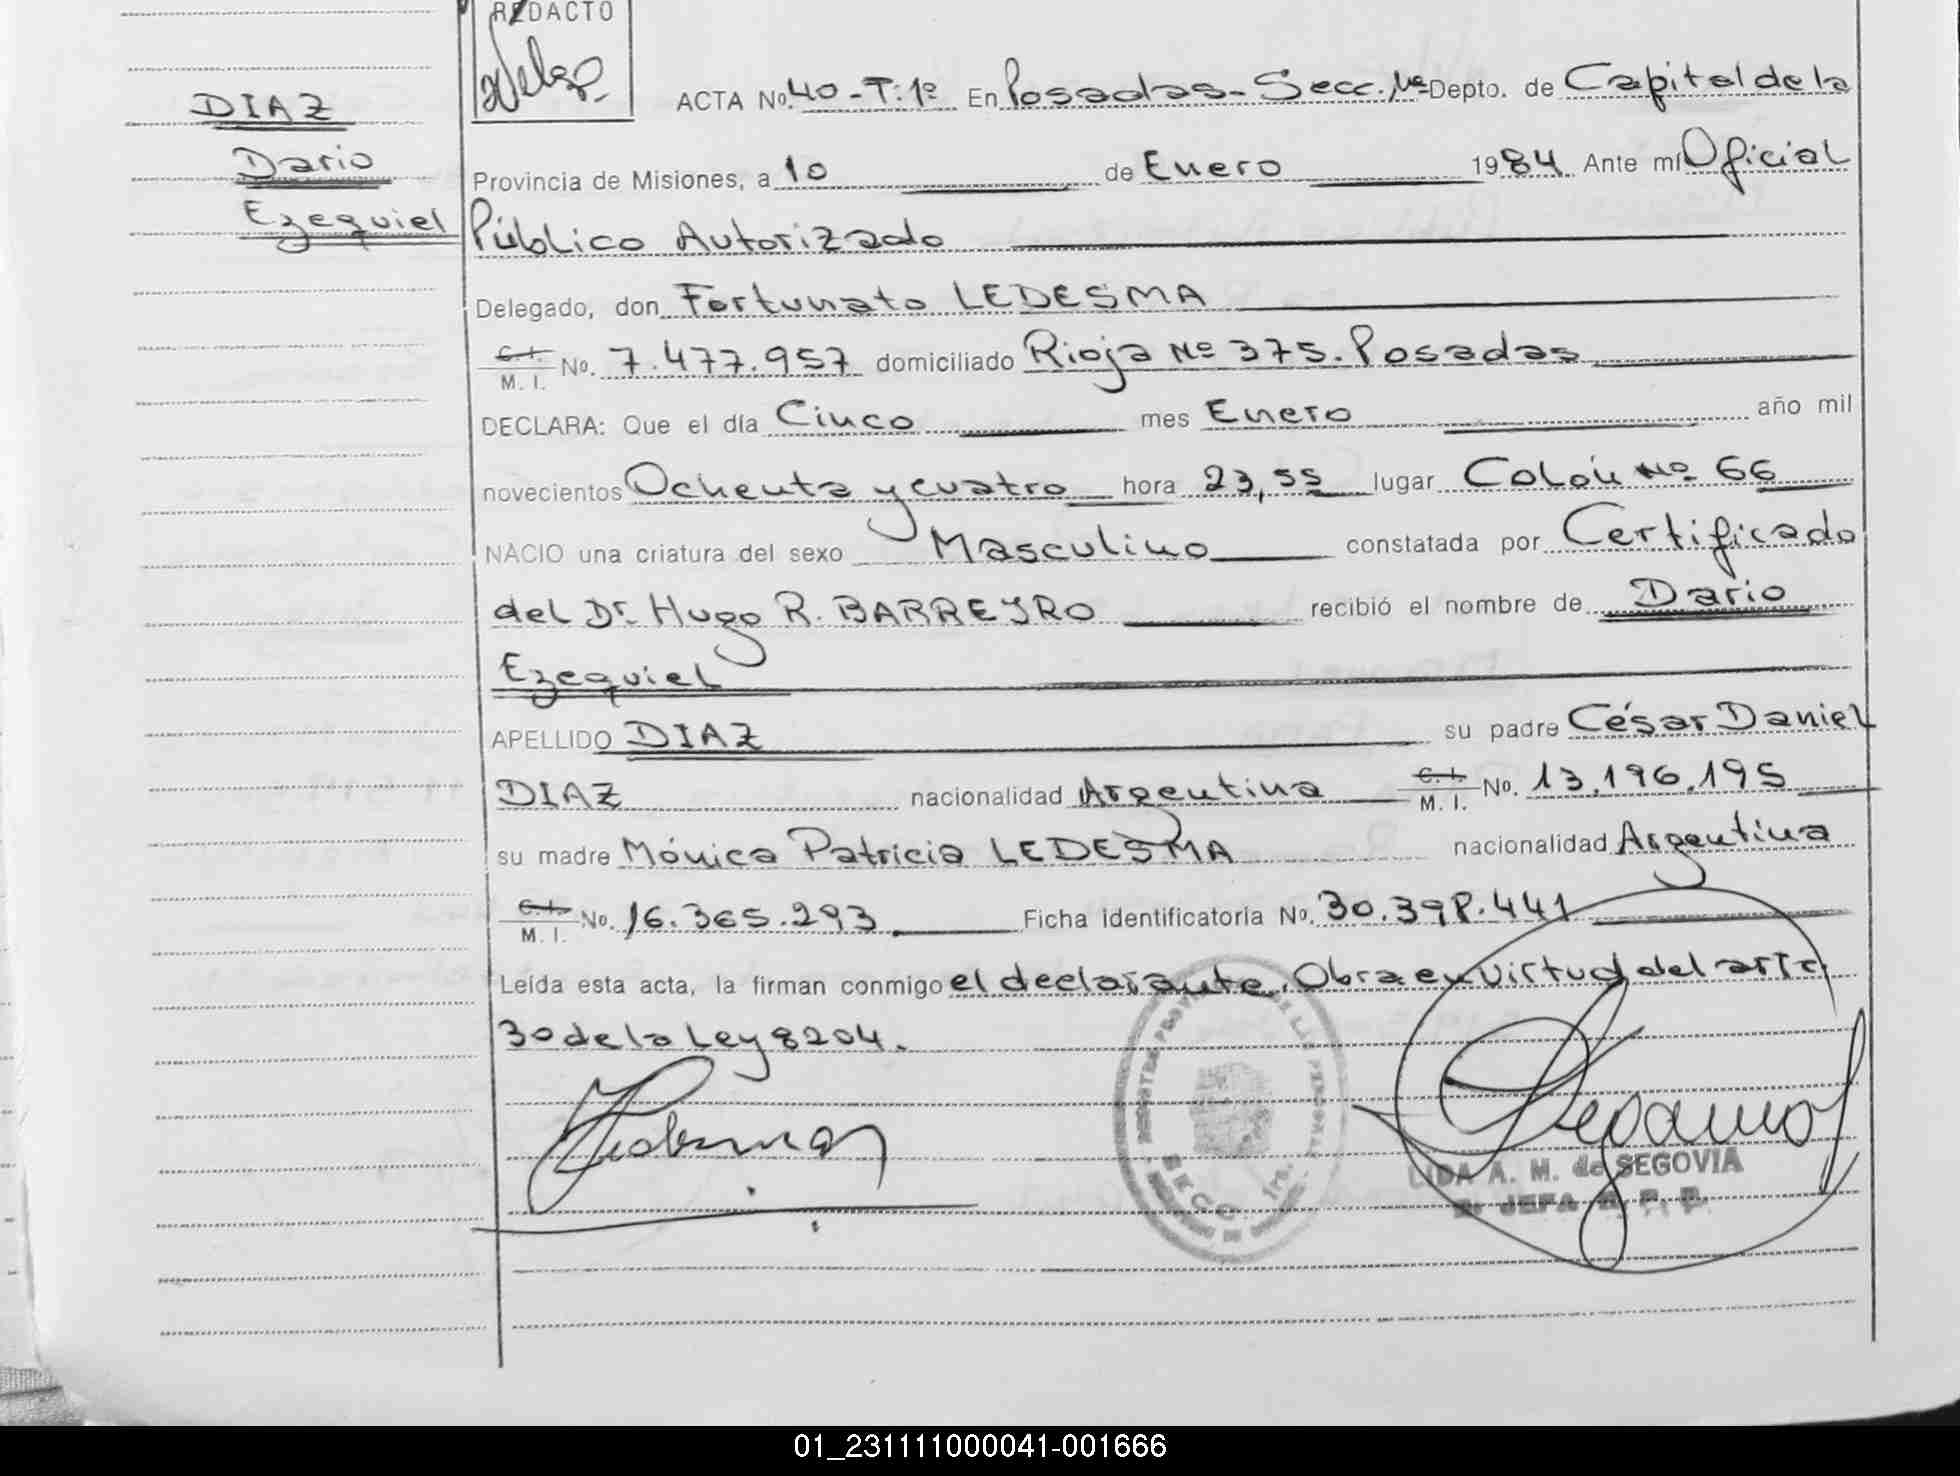 REDACTO
DIAZ
Dario
Ezequiel
ACTA No. 40-T:1º En Posadas-Secc.1ª Depto. de Capital de la
Provincia de Misiones, a 10 de Enero 1984 Ante mí Oficial
Público Autorizado
Delegado, don Fortunato LEDESMA
C.I. M.I. No. 7.477.957 domiciliado Rioja Nº 375. Posadas
DECLARA: Que el día Cinco mes Enero año mil
novecientos Ochenta y cuatro hora 23,55 lugar Colón Nº 66
NACIO una criatura del sexo Masculino constatada por Certificado
del Dr. Hugo R. BARREYRO recibió el nombre de Dario
Ezequiel
APELLIDO DIAZ su padre César Daniel
DIAZ nacionalidad Argentina C.I. M.I. No. 13.196.195
su madre Mónica Patricia LEDESMA nacionalidad Argentina
C.I. M.I. No. 16.365.293 Ficha identificatoria No. 30.398.441
Leída esta acta, la firman conmigo el declarante. Obra en virtud del artc
30 de la Ley 8204.
LIDA A. M. de SEGOVIA
JEFA
01_231111000041-001666